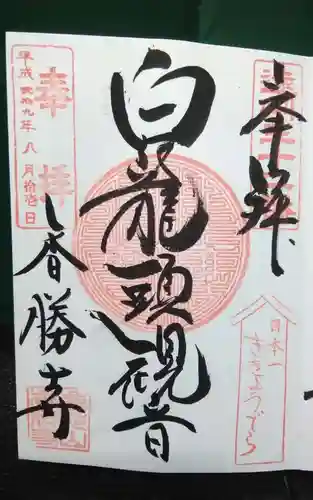 奉拝
日本一
ききょうでら
白龍頭観音
奉拝
平成貮拾九年八月拾壱日
香勝寺